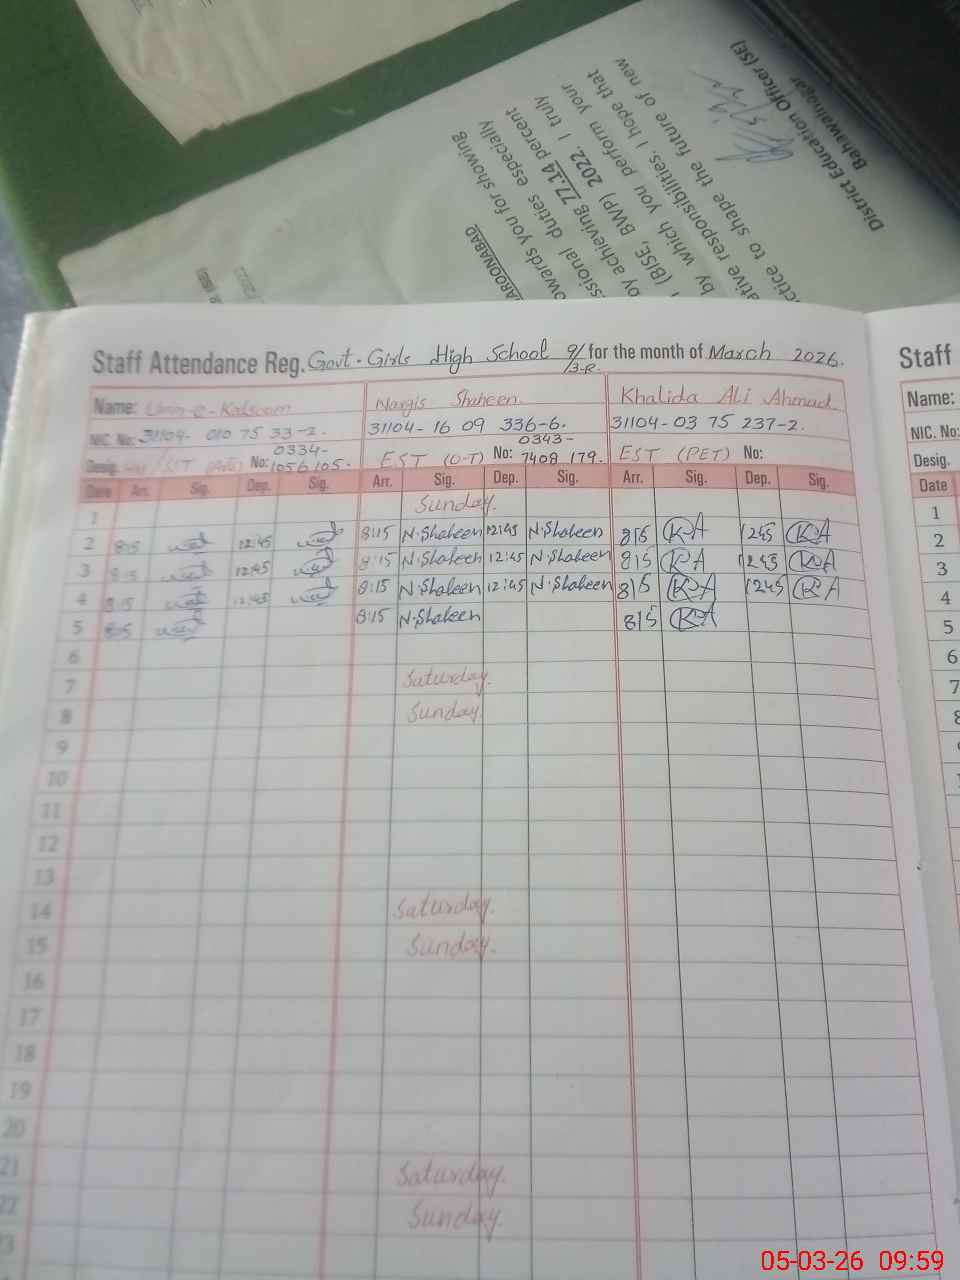 District Education Officer (SE)
Bahawalnagar
new
shape the future of
ctice to
I hope that
ative responsibilities.
by which you perform your
(BISE, BWP) 2022. I truly
by achieving 77.14 percent
ssional duties especially
owards you for showing
AROONABAD
Staff Attendance Reg. Govt. Girls High School 9/3-R. for the month of March 2026.
Name: Umm-e-Kalsoom Nargis Shaheen. Khalida Ali Ahmad.
NIC. No: 31104- 010 75 33-2. 31104- 16 09 336-6. 31104- 03 75 237-2.
Desig. SST No: 0334-1056105. EST (O-T) No: 0343-7408 179. EST (PET) No:
Date Arr. Sig. Dep. Sig. Arr. Sig. Dep. Sig. Arr. Sig. Dep. Sig.
1 Sunday.
2 8:15 12:45 8:15 N.Shaheen 12:45 N.Shaheen 815 KA 1245 KA
3 8:15 12:45 8:15 N.Shaheen 12:45 N.Shaheen 815 KA 1245 KA
4 8:15 12:45 8:15 N.Shaheen 12:45 N.Shaheen 815 KA 1245 KA
5 8:15 8:15 N.Shaheen 815 KA
6
7 Saturday.
8 Sunday.
9
10
11
12
13
14 Saturday.
15 Sunday.
16
17
18
19
20
21 Saturday.
22 Sunday.
23
Staff
Name:
NIC. No:
Desig.
Date
1
2
3
4
5
6
7
05-03-26 09:59